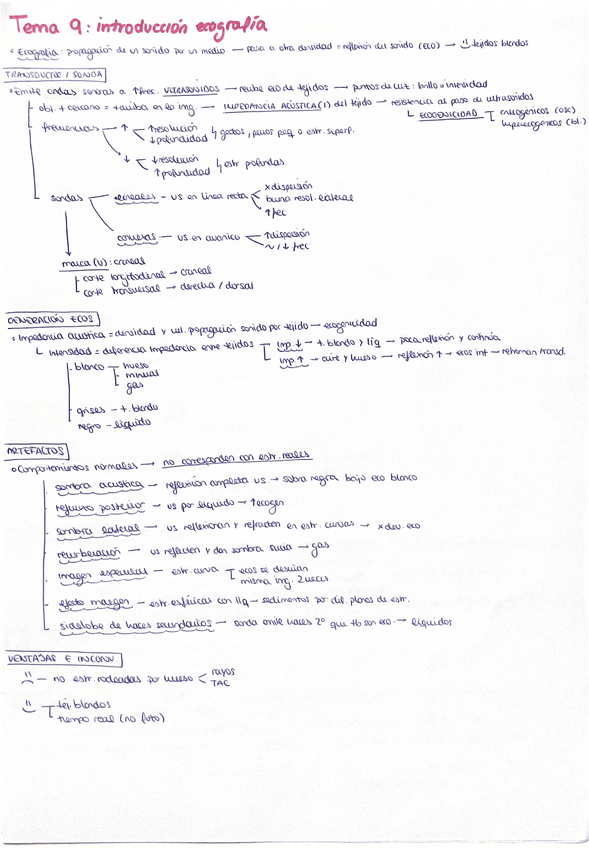 Tema 9: introducción ecografía
° Ecografía: propagación de un sonido por un medio — pasa a otra densidad = reflexión del sonido (ECO) → tejidos blandos
TRANSDUCTOR / SONDA
° Emite ondas sonoras a ↑frec. ULTRASONIDOS → recibe eco de tejidos → puntos de luz: brillo = intensidad
obj. + cercano = + arriba en la img. — IMPEDANCIA ACÚSTICA (I) del tejido → resistencia al paso de ultrasonidos
ECOGENICIDAD
(osc)
hiperecogénicos (bl.)
frecuencias → ↑ ↑resolución
↓profundidad
gatos, perros peq. o estr. superf.
↓ ↓resolución
↑profundidad
estr profundas.
sondas lineales - us en línea recta
x dispersión
buena resol. lateral
↑frec
convexas - us en abanico
↑dispersión
~/↓ frec
marca (U): craneal
corte longitudinal → craneal
corte transversal → derecha / dorsal
GENERACIÓN ECOS
° Impedancia acustica = densidad y vel. propagación sonido por tejido — ecogenicidad
Intensidad = diferencia impedancia entre tejidos
imp ↓ → t. blando y liq — poca reflexión y continúa
imp ↑ → aire y hueso → reflexión ↑ → ecos int → retornan transd.
blanco
hueso
mineral
gas
grises - t. blando
negro - líquido
ARTEFACTOS
° Comportamientos normales → no corresponden con estr. reales
sombra acustica — reflexión completa us. → sobra negra bajo eco blanco
refuerzo posterior — us por líquido → ↑ecogen
sombra lateral — us reflexionan y refractan en estr. curvas → x dev. eco
reverberación — us refracten y dan sombra sucia → gas
imagen especular — estr. curva
ecos se desvían
misma img. 2 veces
efecto margen — estr. esféricas con liq → sedimentos por dif. planos de estr.
de haces secundarios — sonda emite haces 2º que tb son eco. → líquidos
VENTAJAS E INCONV
— no estr. rodeadas por hueso
rayos
TAC
tej. blandos
tiempo real (no foto)